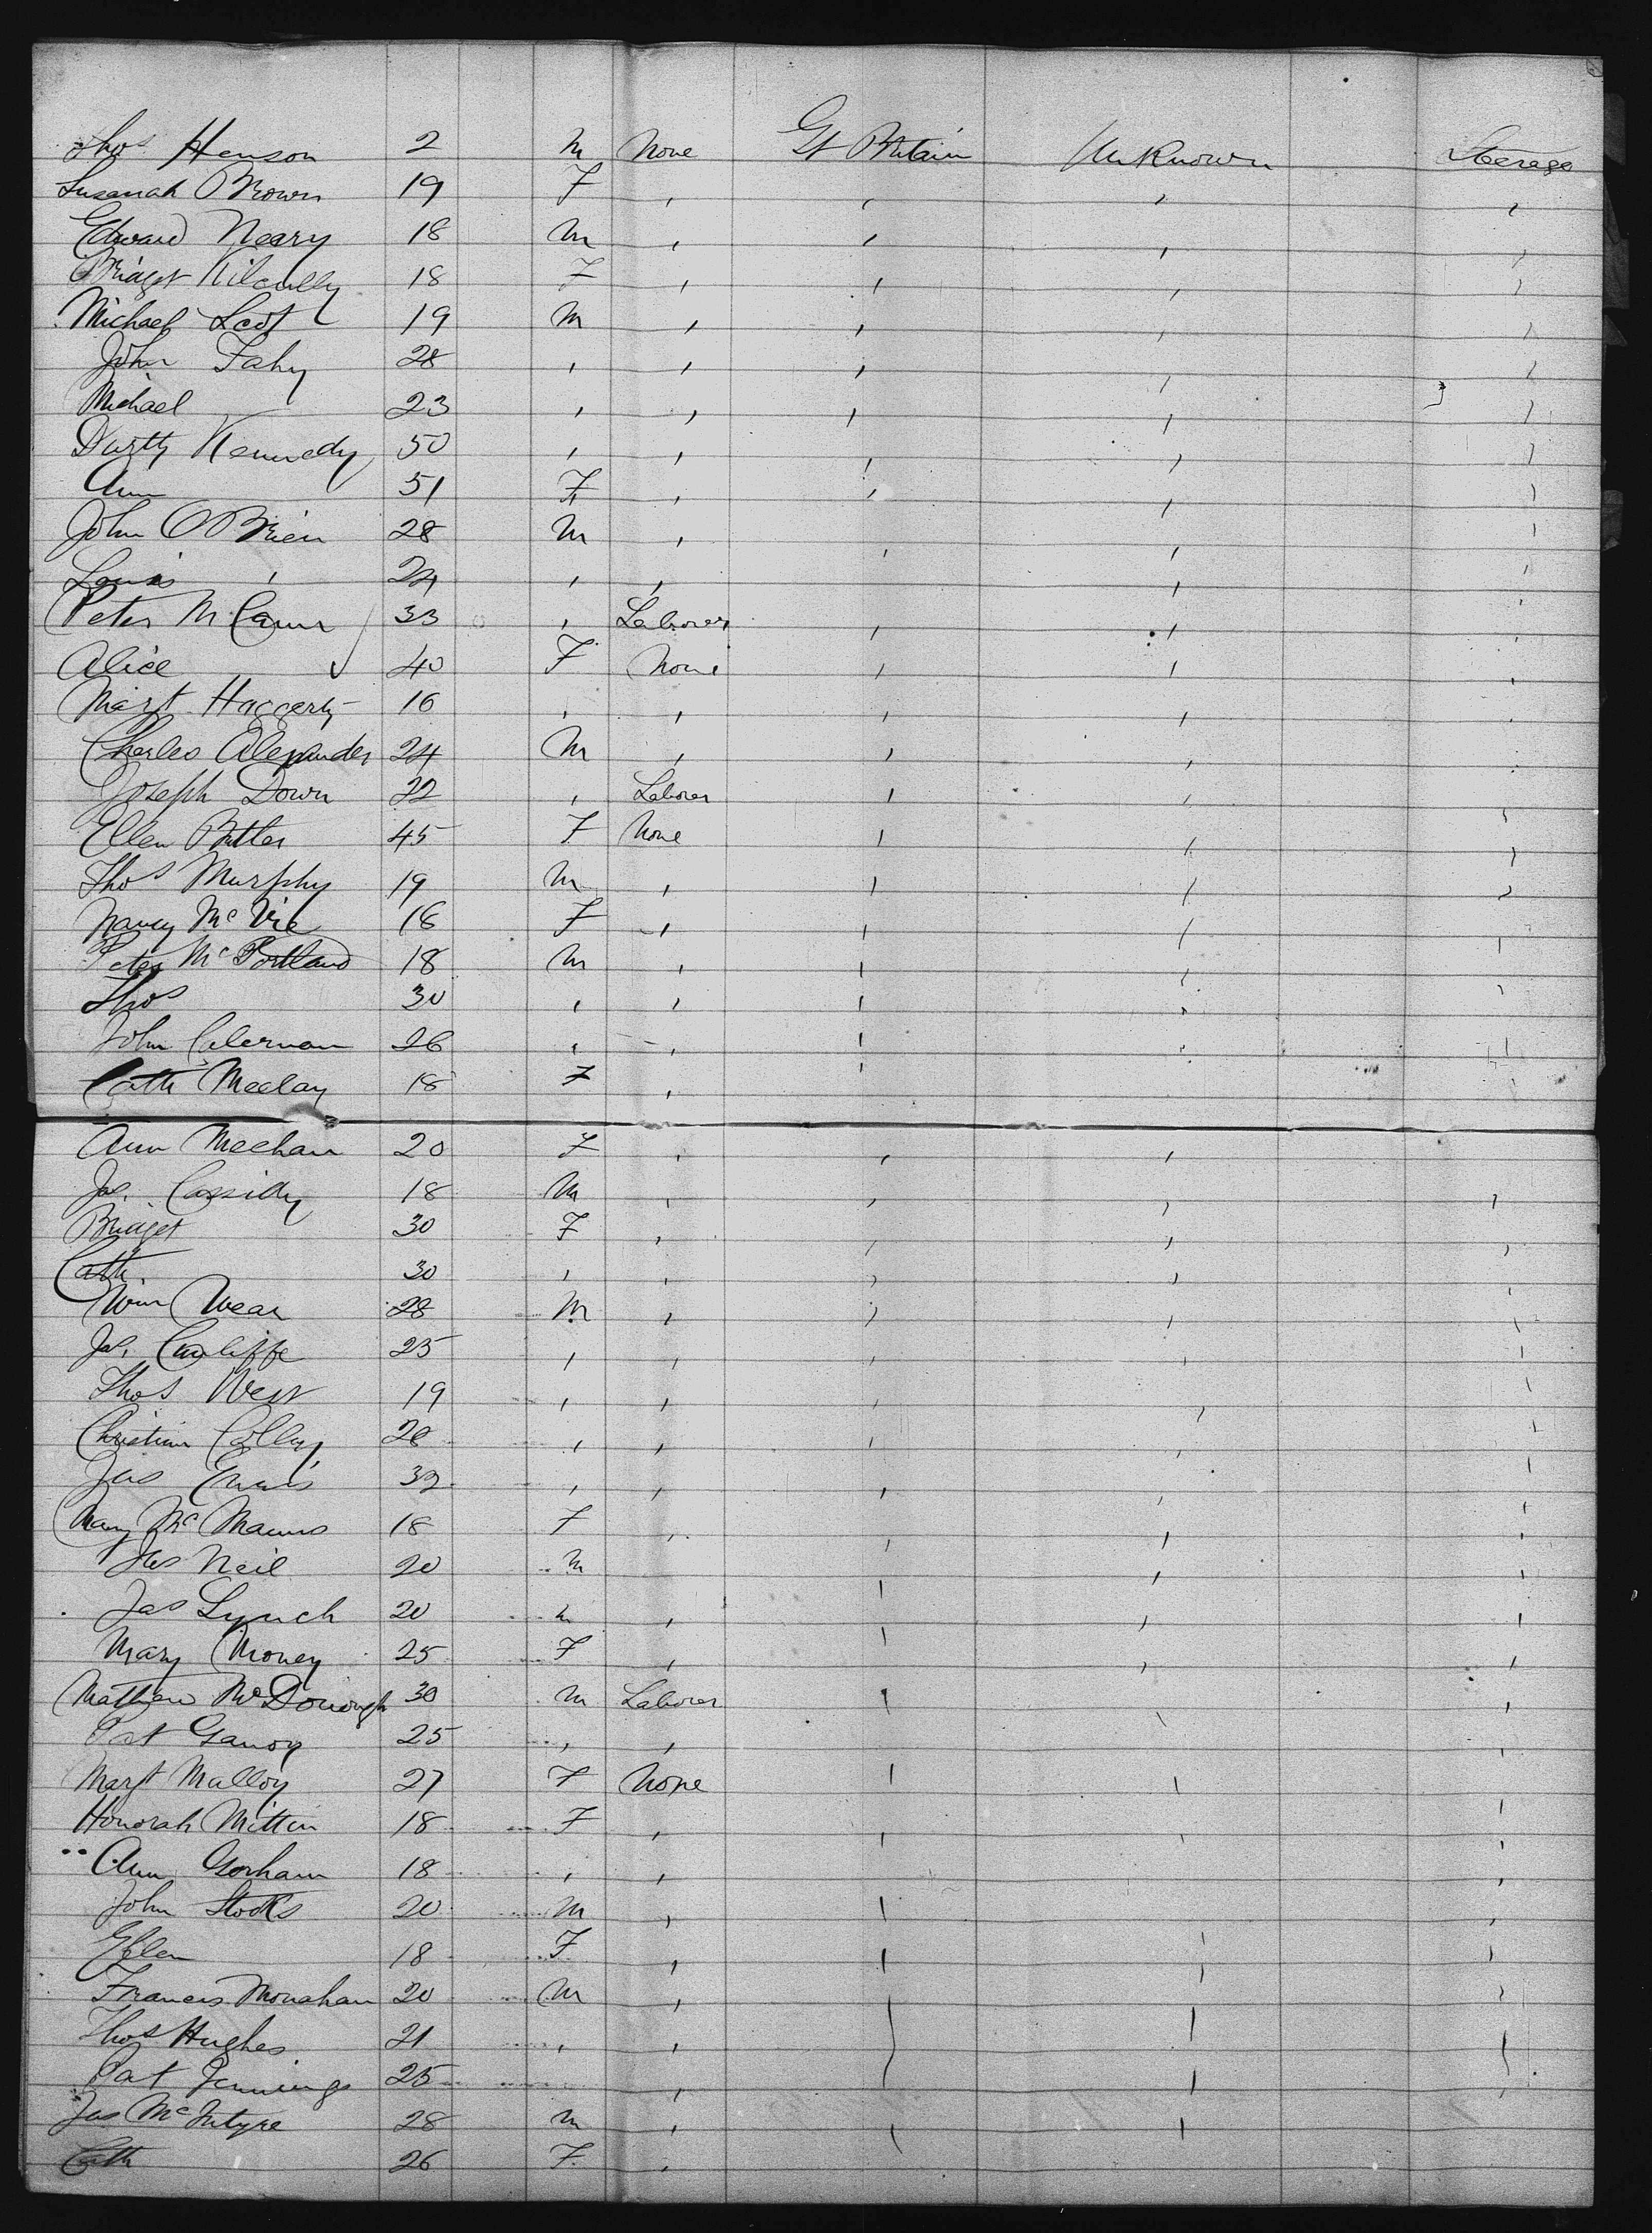 Thos Henson 2 M None Gt Britain Unknown Steerage
Susanah Brown 19 F , , , ,
Edward Neary 18 M , , , ,
Bridget Kilcully 18 F , , , ,
Michael 19 M , , , ,
John Fahy 28 , , , , ,
Michael 23 , , , , ,
Kennedy 50 , , , , ,
Ann 51 F , , , ,
John OBrien 28 M , , , ,
Louis , 24 , , , , ,
Peter McCann 33 , Laborer , , ,
Alice 40 F None , , ,
Margt Haggerty 16 , , , , ,
Charles Alexander 24 M , , , ,
Joseph Down 22 , Laborer , , ,
Ellen Butler 45 F None , , ,
Thos Murphy 19 M , , , ,
Nancy McVie 18 F , , , ,
Peter McPortland 18 M , , , ,
Thos 30 , , , , ,
John Calernan 26 , , , , ,
Cath 18 F , ,
Ann Meehan 20 F , , ,
Jas. Cassidy 18 M , , , ,
Bridget 30 F , , , ,
Cath 30 , , , , ,
Wm Wear 28 M , , , ,
Jas. Cunliffe 25 , , , , ,
Thos West 19 , , , , ,
Christian 28 , , , , ,
Jas 32 , , , , ,
Mary McManus 18 F , , , ,
Jas Neil 20 M , , ,
Jas Lynch 20 M , , , ,
Mary Money 25 F , , ,
Mathew McDonough 30 M Laborer , , ,
Pat Ganoy 25 , , ,
Margt Malloy 27 F None , , ,
Honorah Mittin 18 F , , , ,
Ann Gorham 18 , , ,
John Stocks 20 M , , ,
Ellen 18 F , , , ,
Francis Monahan 20 M , , ,
Thos Hughes 21 , , , , ,
Pat Jennings 25 , , ,
Jas McIntyre 28 M , , ,
Cath 26 F ,